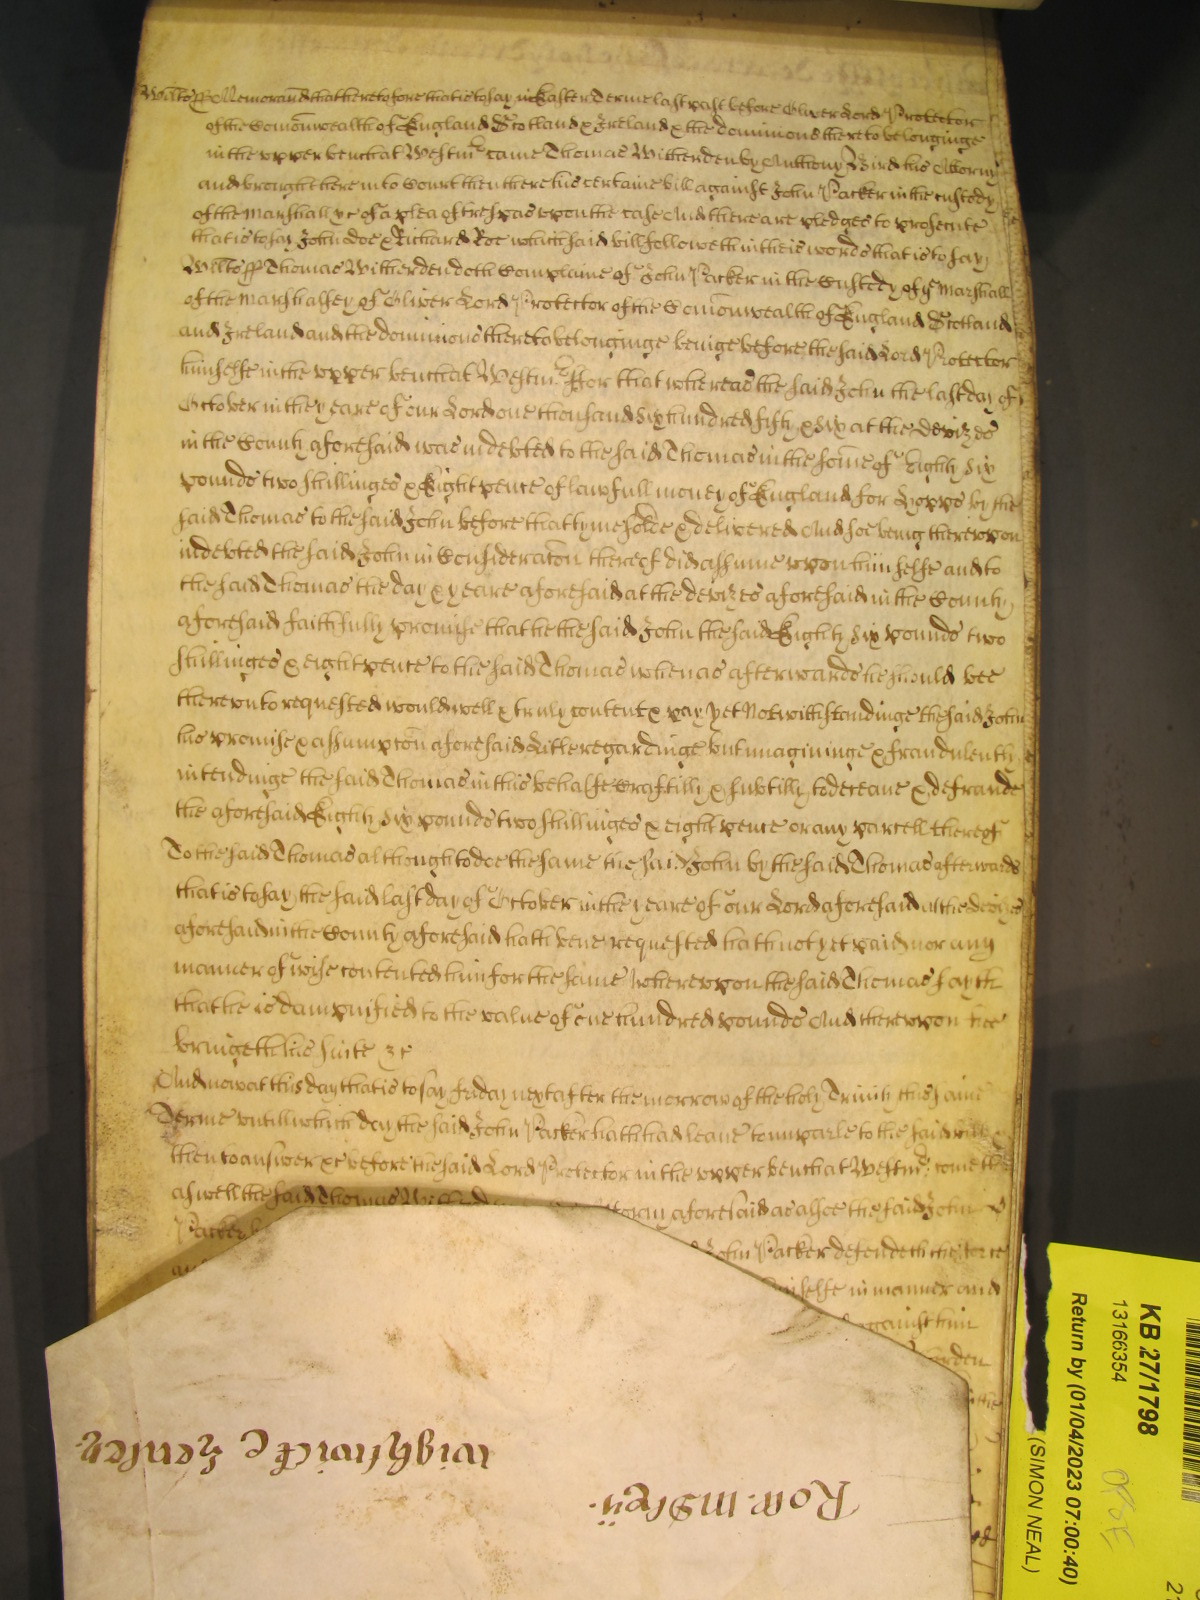 Wiltes ss Memorand that heretofore that is to say in Easter Terme last past before Oliver Lord Protector
of the Comonwealth of England Scotland & Ireland & the dominions thereto belonginge
in the upper bench at Westmr came Thomas Witherden by Anthony Bird his Attorny
and brought here into Court then there his certaine bill against John Packer in the custody
of the Marshall &c of a plea of trespas upon the case And there are pledges to prosecute
that is to say John Doe & Richard Roe which said bill followeth in theis words that is to say
Wiltes ss Thomas Witherden doth Complaine of John Packer in the Custody of ye Marshall
of the Marshalsey of Oliver Lord Protector of the Comonwealth of England Scotland
and Ireland and the dominions thereto belonginge beinge before the said Lord Protector
himselfe in the upper bench at Westmr For that whereas the said John the last day of
October in the yeare of our Lord one thousand six hundred fifty & six at the devizes
in the County aforesaid was indebted to the said Thomas in the some of Eighty six
pounds two shillinges & Eight pence of lawfull money of England for Hopps by the
said Thomas to the said John before that tyme solde & delivered And soe being thereupon
indebted the said John in Consideracon thereof did assume upon himselfe and to
the said Thomas the day & yeare aforesaid at the devizes aforesaid in the County
aforesaid faithfully promise that he the said John the said Eighty six pounds two
shillinges & eight pence to the said Thomas when as afterwards he should bee
thereunto requested would well & truly content & pay Yet Notwithstandinge the said John
his promise & assumpcon aforesaid Litle regardinge but imagininge & fraudulently
intendinge the said Thomas in this behalfe Craftilly & subtilly to deceave & defraude
the aforesaid Eighty six pounds two shillinges & eight pence or any parcell thereof
To the said Thomas although to doe the same the said John by the said Thomas afterwards
that is to say the said last day of October in the yeare of our Lord aforesaid at the devizes
aforesaid in the County aforesaid hath bene requested hath not yet paid nor any
manner of wise contented him for the same whereupon the said Thomas sayth
that he is dampnified to the value of one hundred pounds And thereupon hee
bringeth his suite &c
And now at this day that is to say Friday next after the morrow of the holy Trinity this same
Terme untill which day the said John Packer hath had leave to imparle to the said bill &
then to answer &c before the said Lord Protector in the upper bench at Westmr come th
aswell the said Thomas Attorny aforesaid as alsoe the said John
Packer John Packer defendeth the force
himselfe in manner and
against him
wighwicke Zenler
Roll. Insley
KB 27/1798
13166354
Return by (01/04/2023 07:00:40)
(SIMON NEAL)